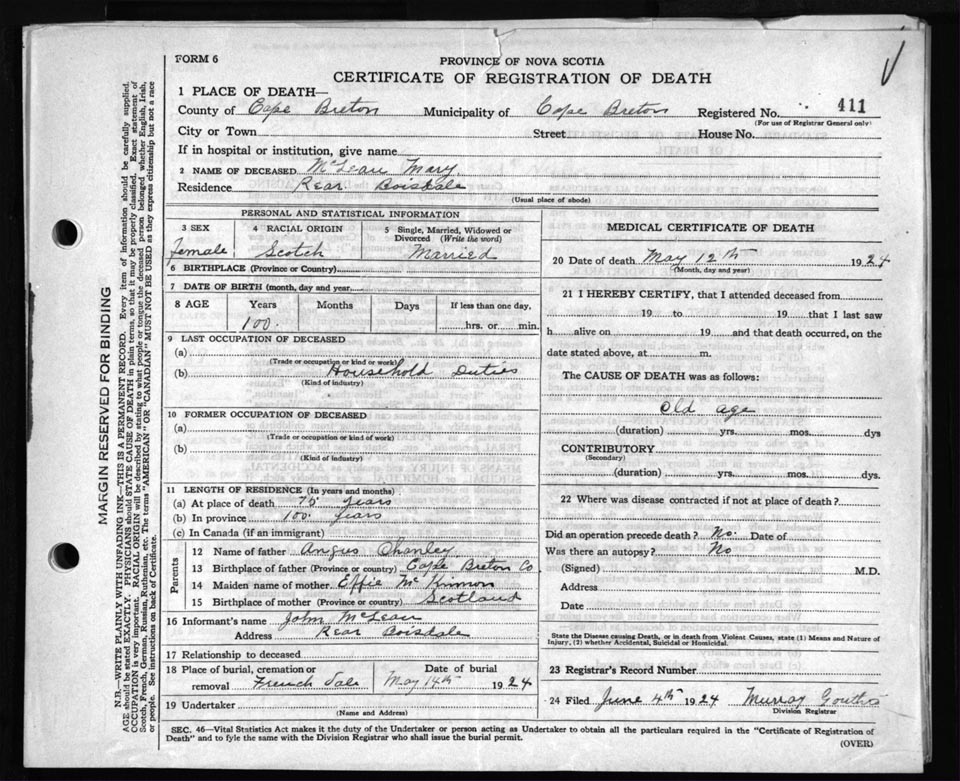 FORM 6
PROVINCE OF NOVA SCOTIA
CERTIFICATE OF REGISTRATION OF DEATH
1 PLACE OF DEATH—
County of Cape Breton Municipality of Cape Breton Registered No. 411
(For use of Registrar General only)
City or Town Street House No.
If in hospital or institution, give name
2 NAME OF DECEASED McLean Mary
Residence Rear Boisdale
(Usual place of abode)
PERSONAL AND STATISTICAL INFORMATION
3 SEX 4 RACIAL ORIGIN 5 Single, Married, Widowed or
Divorced (Write the word)
Female Scotch Married
6 BIRTHPLACE (Province or Country)
7 DATE OF BIRTH (month, day and year
8 AGE Years Months Days If less than one day,
100. hrs. or min.
9 LAST OCCUPATION OF DECEASED
(a)
(Trade or occupation or kind or work)
(b) Household Duties
(Kind of industry)
10 FORMER OCCUPATION OF DECEASED
(a)
(Trade or occupation or kind of work)
(b)
(Kind of industry)
11 LENGTH OF RESIDENCE (In years and months)
(a) At place of death 75 years
(b) In province 100 years
(c) In Canada (if an immigrant)
Parents
12 Name of father Angus
13 Birthplace of father (Province or country) Cape Breton Co
14 Maiden name of mother. Effie McKinnon
15 Birthplace of mother (Province or country) Scotland
16 Informant's name John McLean
Address Rear Boisdale
17 Relationship to deceased
18 Place of burial, cremation or Date of burial
removal French Vale May 14th 1924
19 Undertaker
(Name and Address)
MEDICAL CERTIFICATE OF DEATH
20 Date of death May 12th 1924
(Month, day and year)
21 I HEREBY CERTIFY, that I attended deceased from
19 to 19 that I last saw
h alive on 19 and that death occurred, on the
date stated above, at m.
The CAUSE OF DEATH was as follows:
Old age
(duration) yrs. mos. dys
CONTRIBUTORY
(Secondary)
(duration) yrs. mos. dys.
22 Where was disease contracted if not at place of death?
Did an operation precede death? No. Date of
Was there an autopsy? No
(Signed) M.D.
Address
Date
State the Disease causing Death, or in death from Violent Causes, state (1) Means and Nature of
Injury, (2) whether Accidental, Suicidal or Homicidal.
23 Registrar's Record Number
24 Filed June 4th 1924 Murray
Division Registrar
SEC. 46—Vital Statistics Act makes it the duty of the Undertaker or person acting as Undertaker to obtain all the particulars required in the "Certificate of Registration of
Death" and to fyle the same with the Division Registrar who shall issue the burial permit.
(OVER)
MARGIN RESERVED FOR BINDING
N.B.—WRITE PLAINLY WITH UNFADING INK—THIS IS A PERMANENT RECORD. Every item of information should be carefully supplied.
AGE should be stated EXACTLY. PHYSICIANS should STATE CAUSE OF DEATH in plain terms, so that it may be properly classified. Exact statement of
OCCUPATION is very important. RACIAL ORIGIN will be described by stating to what people or tongue the deceased person belonged whether English, Irish,
Scotch, French, German, Russian, Ruthenian, etc. The terms "AMERICAN" OR "CANADIAN" MUST NOT BE USED as they express citizenship but not a race
or people. See instructions on back of Certificate.